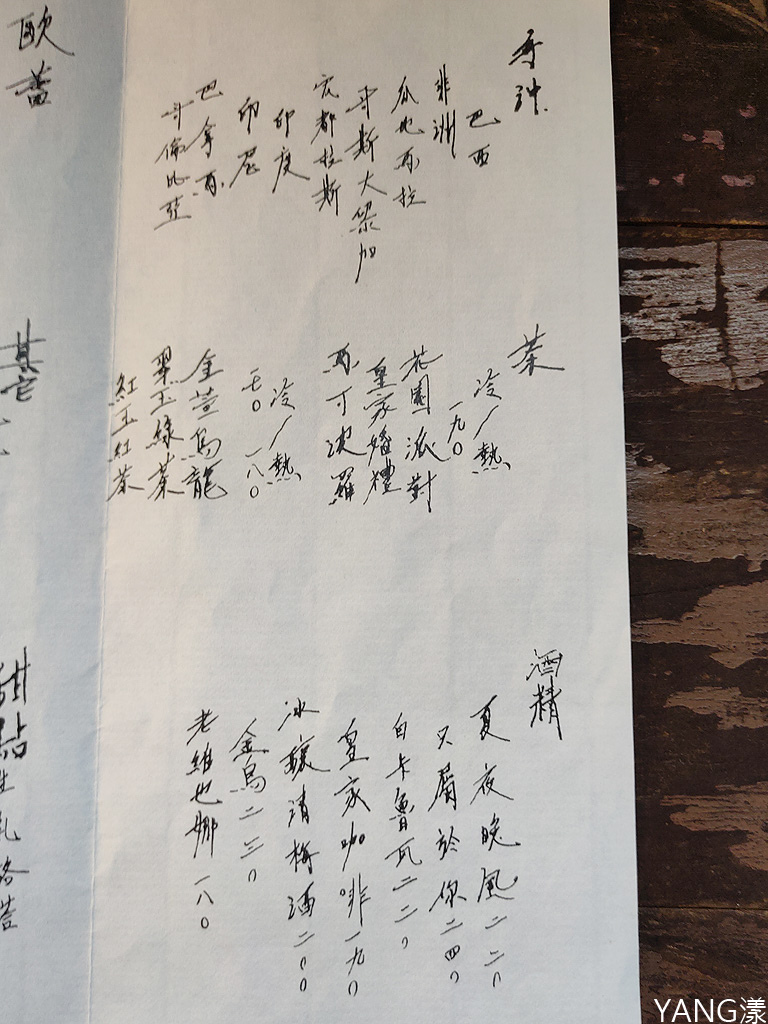 手沖
巴西
非洲
瓜地馬拉
哥斯大黎加
宏都拉斯
印度
印尼
巴拿馬
哥倫比亞
茶
冷/熱
一九〇
花園派對
皇家婚禮
馬可波羅
冷/熱
一七〇 一八〇
金萱烏龍
翠玉綠茶
紅玉紅茶
酒精
夏夜晚風二二〇
只屬於你二四〇
白卡魯瓦二二〇
皇家咖啡一九〇
冰釀清梅酒二〇〇
金烏二三〇
老維也娜一八〇
歐蕾
其它
甜點
生乳
YANG漾